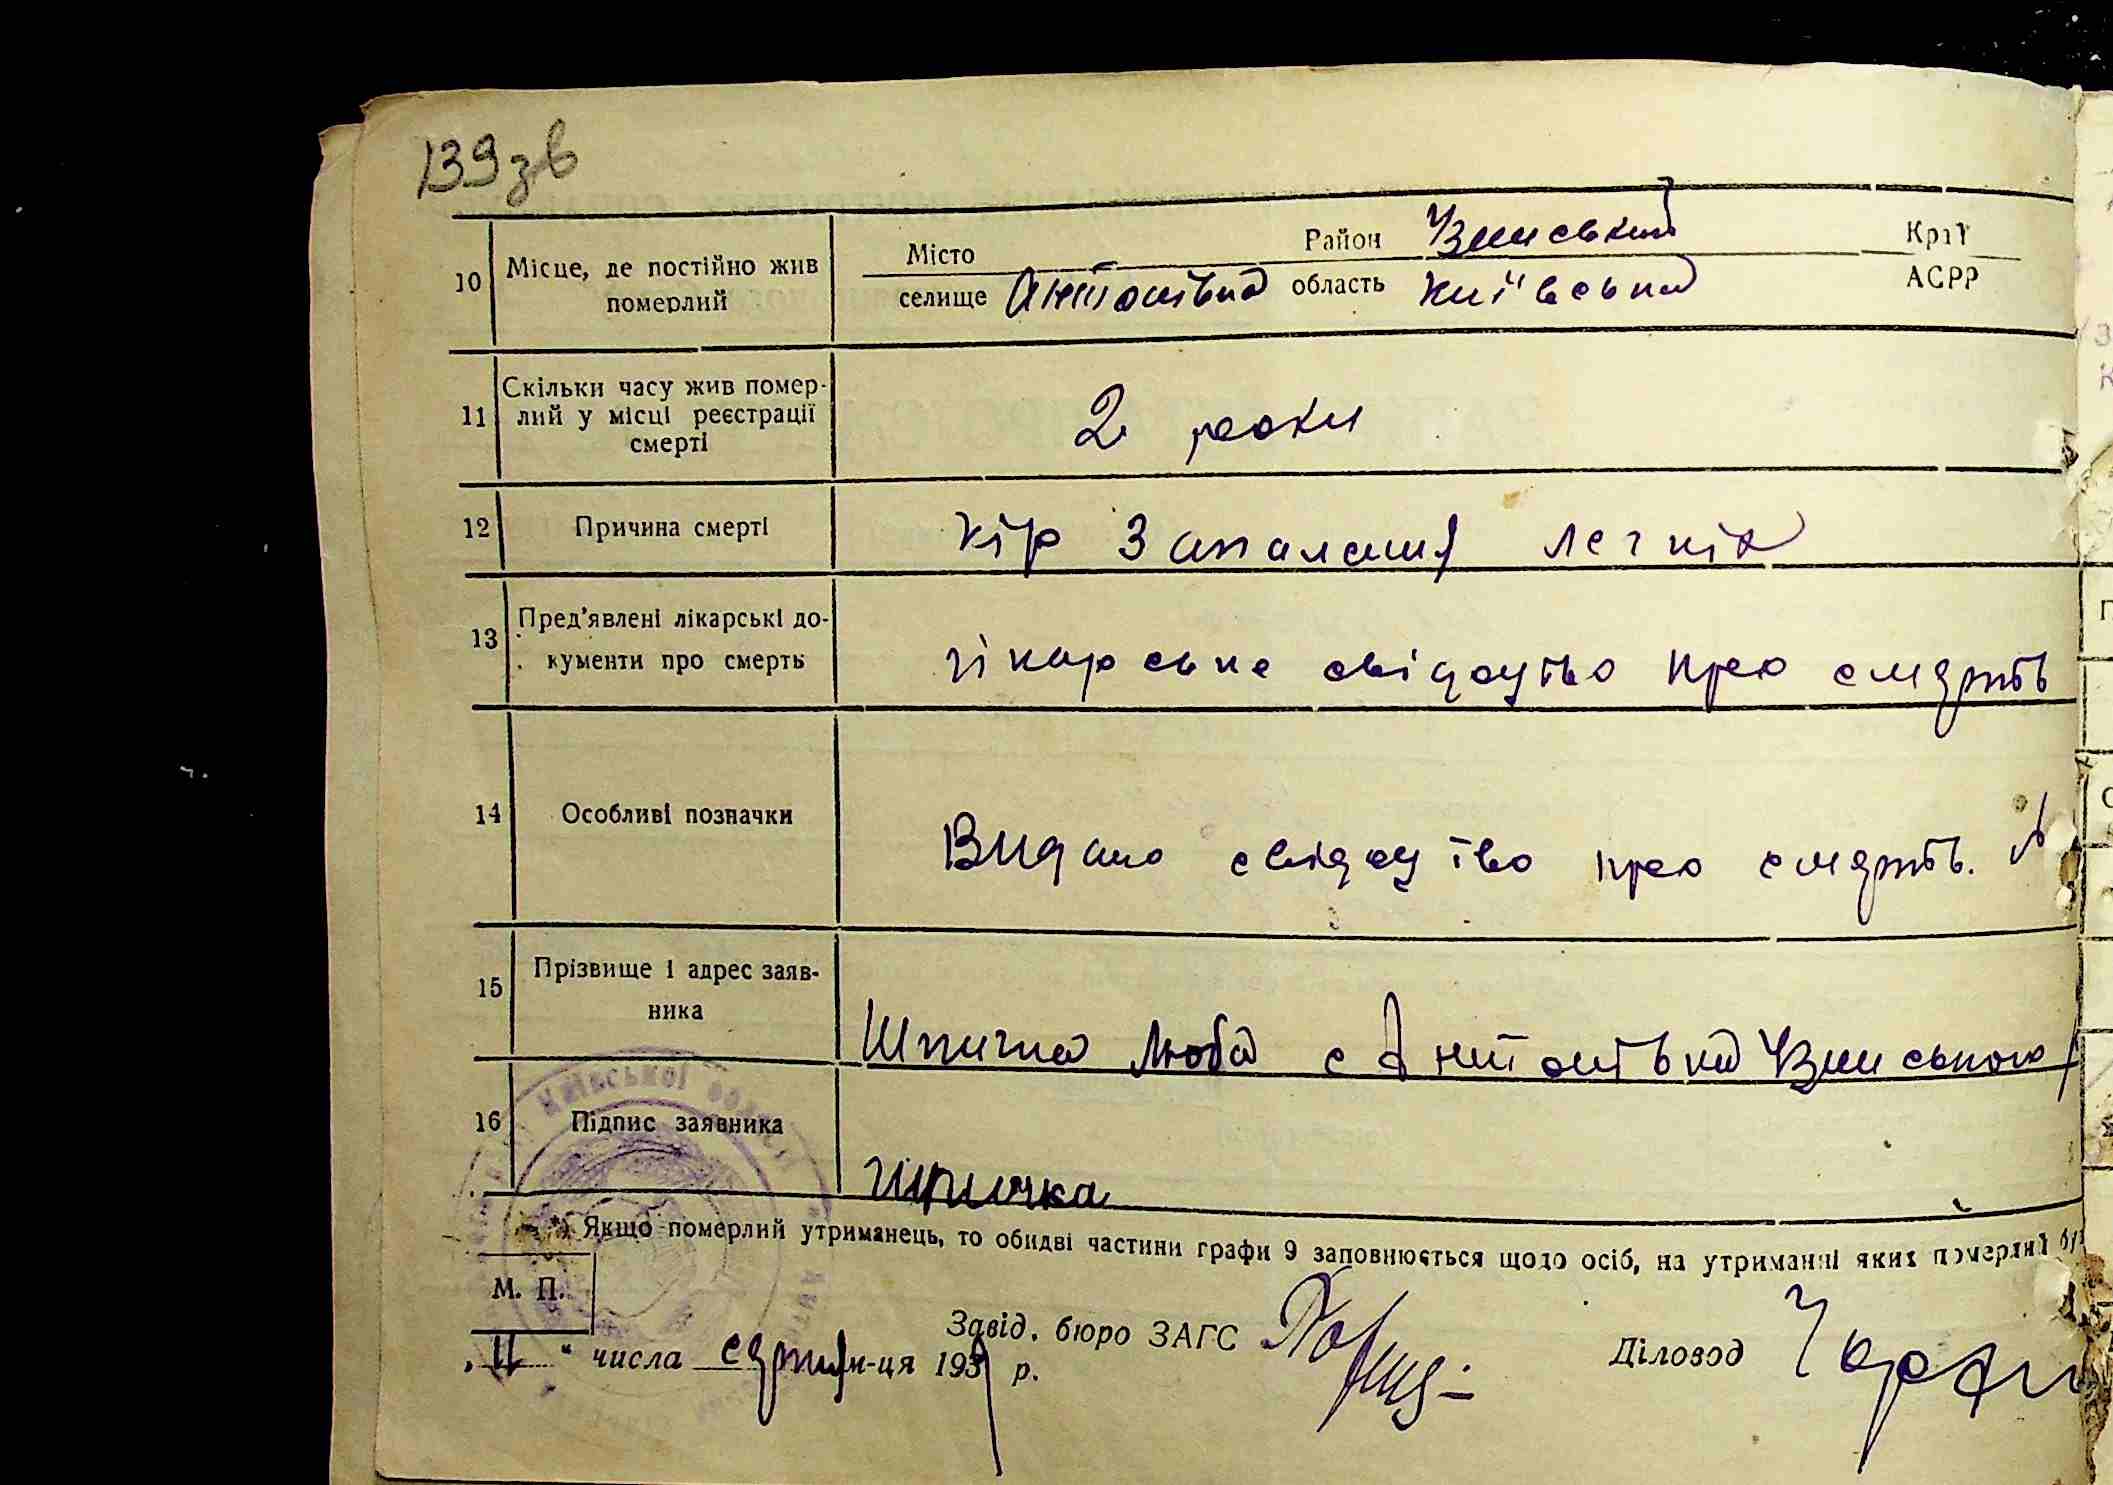 139 зв
10 Місце, де постійно жив померлий Місто Район Узинський Край
селище Антонівка область Київська АСРР
11 Скільки часу жив помер-
лий у місці реєстрації
смерті 2 роки
12 Причина смерті кір Запалення легнів
13 Пред'явлені лікарські до-
кументи про смерть лікарське свідоцтво про смерть
14 Особливі позначки Видано свідоцтво про смерть.
15 Прізвище і адрес заяв-
ника Шпичка Люба с Антонівка Узинського
16 Підпис заявника Шпичка
*) Якщо померлий утриманець, то обидві частини графи 9 заповнюється щодо осіб, на утриманні яких померлий
М. П.
Завід. бюро ЗАГС Діловод
„11“ числа серпня м-ця 193 р.
Київської